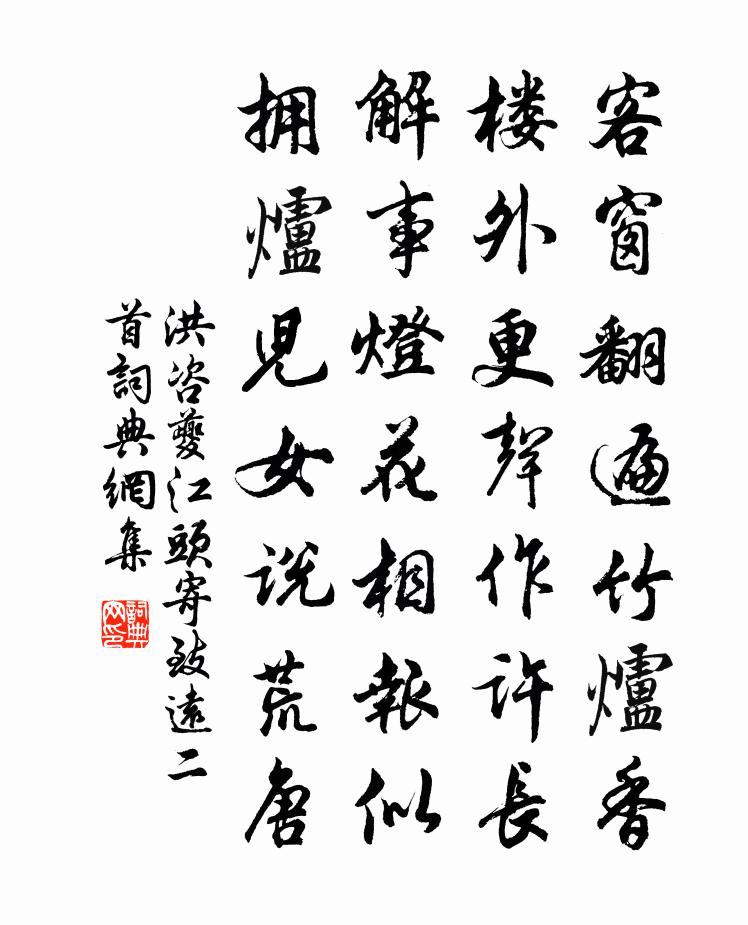 客窗翻遍竹爐香
楼外更聲作許長
解事燈花相報似
拥爐児女说荒唐
洪咨夔江頭寄致遠二
首詞典網集
詞典网印